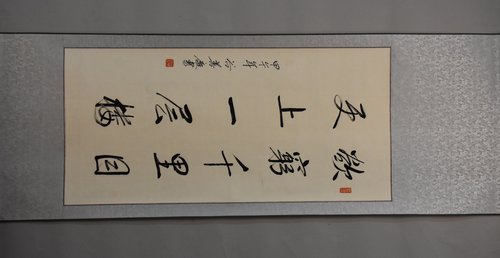 欲窮千里目
更上一层楼
甲午年